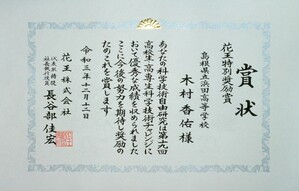 賞状
花王特別奨励賞
島根県立浜田高等学校
木村香佑様
あなたの科学技術自由研究は第十九回
高校生・高専生科学技術チャレンジに
おいて優秀な成績を収められました
ここに今後の努力を期待し奨励の
ためこれを賞します
令和三年十二月十二日
花王株式会社
代表取締役
社長執行役員
長谷部佳宏